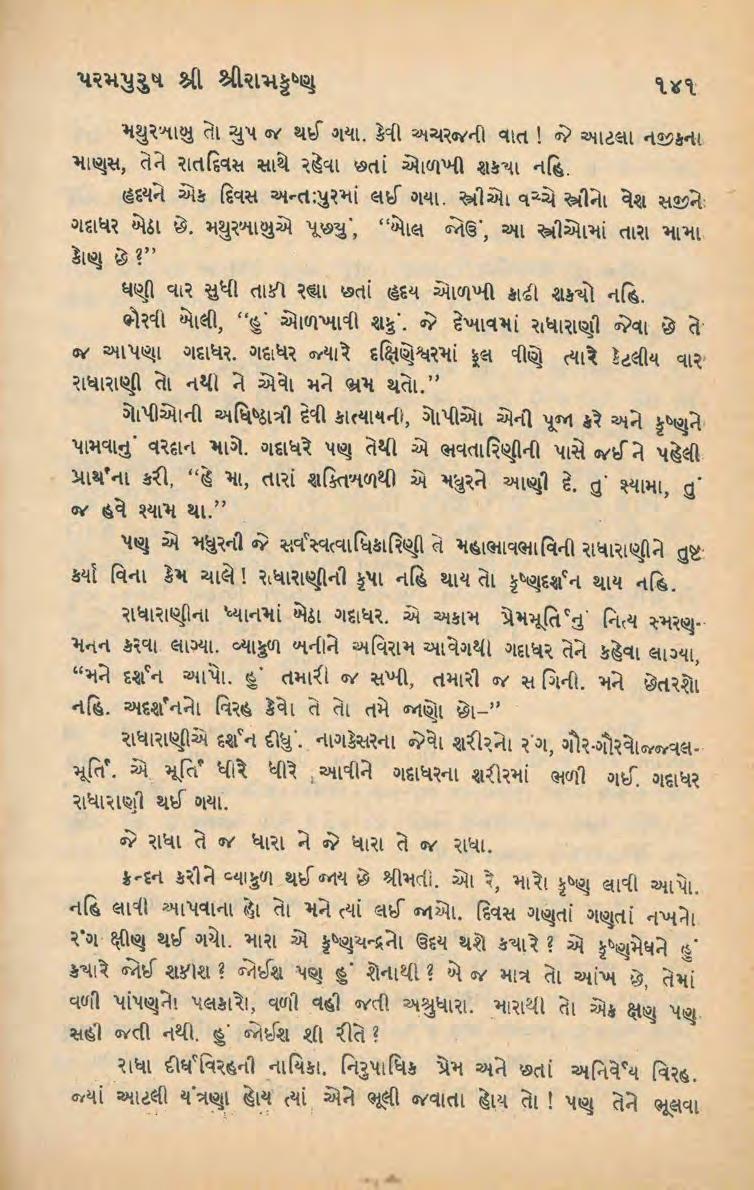 પરમપુરુષ શ્રી શ્રીરામકૃષ્ણ ૧૪૧
મથુરબાબુ તો ચુપ જ થઈ ગયા. કેવી અચરજની વાત ! જે આટલા નજીકના
માણસ, તેને રાતદિવસ સાથે રહેવા છતાં ઓળખી શકયા નહિ.
હૃદયને એક દિવસ અન્તઃપુરમાં લઈ ગયા. સ્ત્રીઓ વચ્ચે સ્ત્રીનો વેશ સજીને
ગદાધર બેઠા છે. મથુરબાબુએ પૂછ્યું, “બોલ જોઉં, આ સ્ત્રીઓમાં તારા મામા
કોણ છે ?”
ઘણી વાર સુધી તાકી રહ્યા છતાં હૃદય ઓળખી કાઢી શકયો નહિ.
ભૈરવી બોલી, “હું ઓળખાવી શકું. જે દેખાવમાં રાધારાણી જેવા છે તે
જ આપણા ગદાધર. ગદાધર જ્યારે દક્ષિણેશ્વરમાં ફૂલ વીણે ત્યારે કેટલીય વાર
રાધારાણી તો નથી ને એવો મને ભ્રમ થતો.”
ગોપીઓની અધિષ્ઠાત્રી દેવી કાત્યાયની, ગોપીઓ એની પૂજા કરે અને કૃષ્ણને
પામવાનું વરદાન માગે. ગદાધરે પણ તેથી એ ભવતારિણીની પાસે જઈને પહેલી
પ્રાર્થના કરી, “હે મા, તારાં શક્તિબળથી એ મધુરને આણી દે. તું શ્યામા, તું
જ હવે શ્યામ થા.”
પણ એ મધુરની જે સર્વસ્વત્વાધિકારિણી તે મહાભાવભાવિની રાધારાણીને તુષ્ટ
કર્યા વિના કેમ ચાલે ! રાધારાણીની કૃપા નહિ થાય તો કૃષ્ણદર્શન થાય નહિ.
રાધારાણીના ધ્યાનમાં બેઠા ગદાધર. એ અકામ પ્રેમમૂર્તિનું નિત્ય સ્મરણ-
મનન કરવા લાગ્યા. વ્યાકુળ બનીને અવિરામ આવેગથી ગદાધર તેને કહેવા લાગ્યા,
“મને દર્શન આપો. હું તમારી જ સખી, તમારી જ સંગિની. મને છેતરશો
નહિ. અદર્શનનો વિરહ કેવો તે તો તમે જાણો છો–”
રાધારાણીએ દર્શન દીધું. નાગકેસરના જેવો શરીરનો રંગ, ગૌર-ગૌરવોજ્જ્વલ-
મૂર્તિ. એ મૂર્તિ ધીરે ધીરે આવીને ગદાધરના શરીરમાં ભળી ગઈ. ગદાધર
રાધારાણી થઈ ગયા.
જે રાધા તે જ ધારા ને જે ધારા તે જ રાધા.
ક્રન્દન કરીને વ્યાકુળ થઈ જાય છે શ્રીમતી. ઓ રે, મારો કૃષ્ણ લાવી આપો.
નહિ લાવી આપવાના હો તો મને ત્યાં લઈ જાઓ. દિવસ ગણતાં ગણતાં નખનો
રંગ ક્ષીણ થઈ ગયો. મારા એ કૃષ્ણચન્દ્રનો ઉદય થશે કયારે ? એ કૃષ્ણમેઘને હું
કયારે જોઈ શકીશ ? જોઈશ પણ હું શેનાથી ? બે જ માત્ર તો આંખ છે, તેમાં
વળી પાંપણનો પલકારો, વળી વહી જતી અશ્રુધારા. મારાથી તો એક ક્ષણ પણ
સહી જતી નથી. હું જોઈશ શી રીતે ?
રાધા દીર્ઘવિરહની નાયિકા. નિરુપાધિક પ્રેમ અને છતાં અનિર્વેય વિરહ.
જ્યાં આટલી યંત્રણા હોય ત્યાં એને ભૂલી જવાતા હોય તો ! પણ તેને ભૂલવા